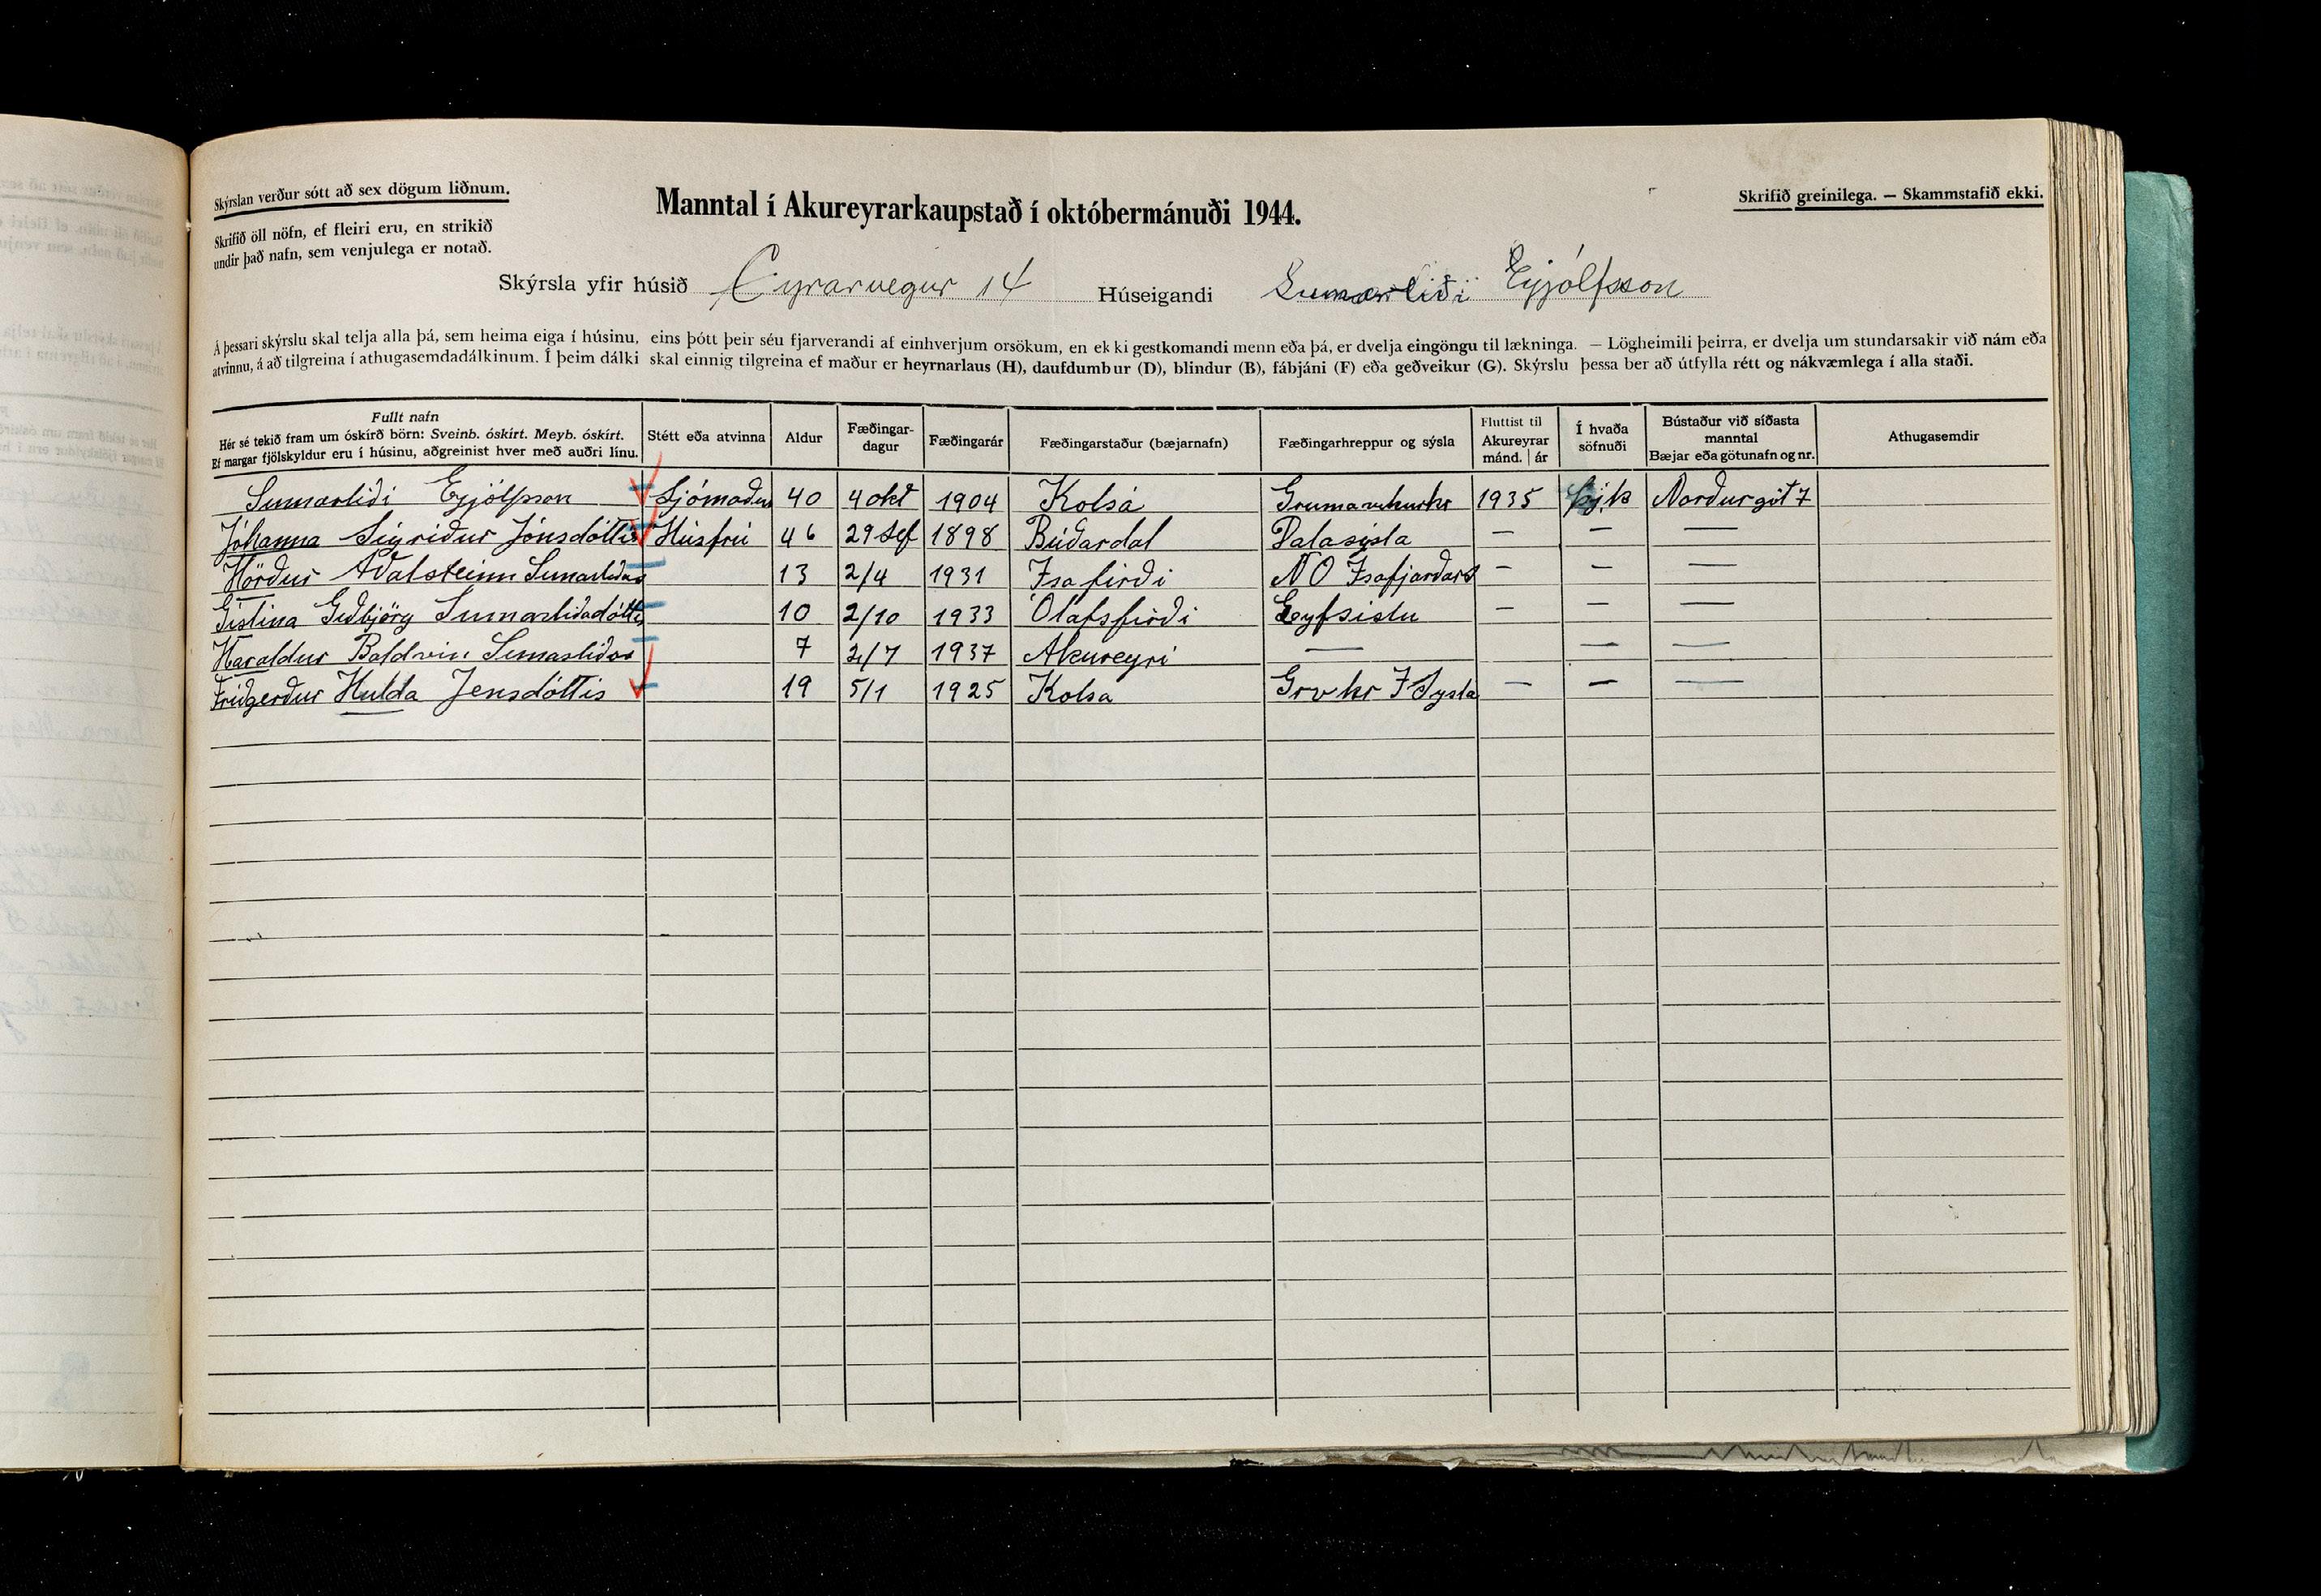 Skýrslan verður sótt að sex dögum liðnum.
Skrifið öll nöfn, ef fleiri eru, en strikið
undir það nafn, sem venjulega er notað.
Manntal í Akureyrarkaupstað í októbermánuði 1944.
Skrifið greinilega. — Skammstafið ekki.
Skýrsla yfir húsið Eyrarvegur 14 Húseigandi Sumarliði Eyjólfsson
Á þessari skýrslu skal telja alla þá, sem heima eiga í húsinu, eins þótt þeir séu fjarverandi af einhverjum orsökum, en ekki gestkomandi menn eða þá, er dvelja eingöngu til lækninga. — Lögheimili þeirra, er dvelja um stundarsakir við nám eða
atvinnu, á að tilgreina í athugasemdadálkinum. Í þeim dálki skal einnig tilgreina ef maður er heyrnarlaus (H), daufdumbur (D), blindur (B), fábjáni (F) eða geðveikur (G). Skýrslu þessa ber að útfylla rétt og nákvæmlega í alla staði.
Fullt nafn
Hér sé tekið fram um óskírð börn: Sveinb. óskírt. Meyb. óskírt.
Ef margar fjölskyldur eru í húsinu, aðgreinist hver með auðri línu.
Stétt eða atvinna
Aldur
Fæðingar-
dagur
Fæðingarár
Fæðingarstaður (bæjarnafn)
Fæðingarhreppur og sýsla
Fluttist til
Akureyrar
mánd. | ár
Í hvaða
söfnuði
Bústaður við síðasta
manntal
Bæjar eða götunafn og nr.
Athugasemdir
Sumarliði Eyjólfsson Sjómaður 40 4 okt 1904 Kolsá 1935 þjk Norðurgöt 7
Jóhanna Sigriður Jónsdóttir Húsfrú 46 29 Sef 1898 Búðardal Dalasýsla — — —
Hörður Aðalsteinn Sumarliðas 13 2/4 1931 Isafirði N O Isafjarðars — — —
Gislina Guðbjörg Sumarliðadótti 10 2/10 1933 Ólafsfirði Eyfsislu — — —
Haraldur Baldvin Sumarliðas 7 2/7 1937 Akureyri — — —
Friðgerður Hulda Jensdóttir 19 5/1 1925 Kolsa Grv hr I Sysla — — —